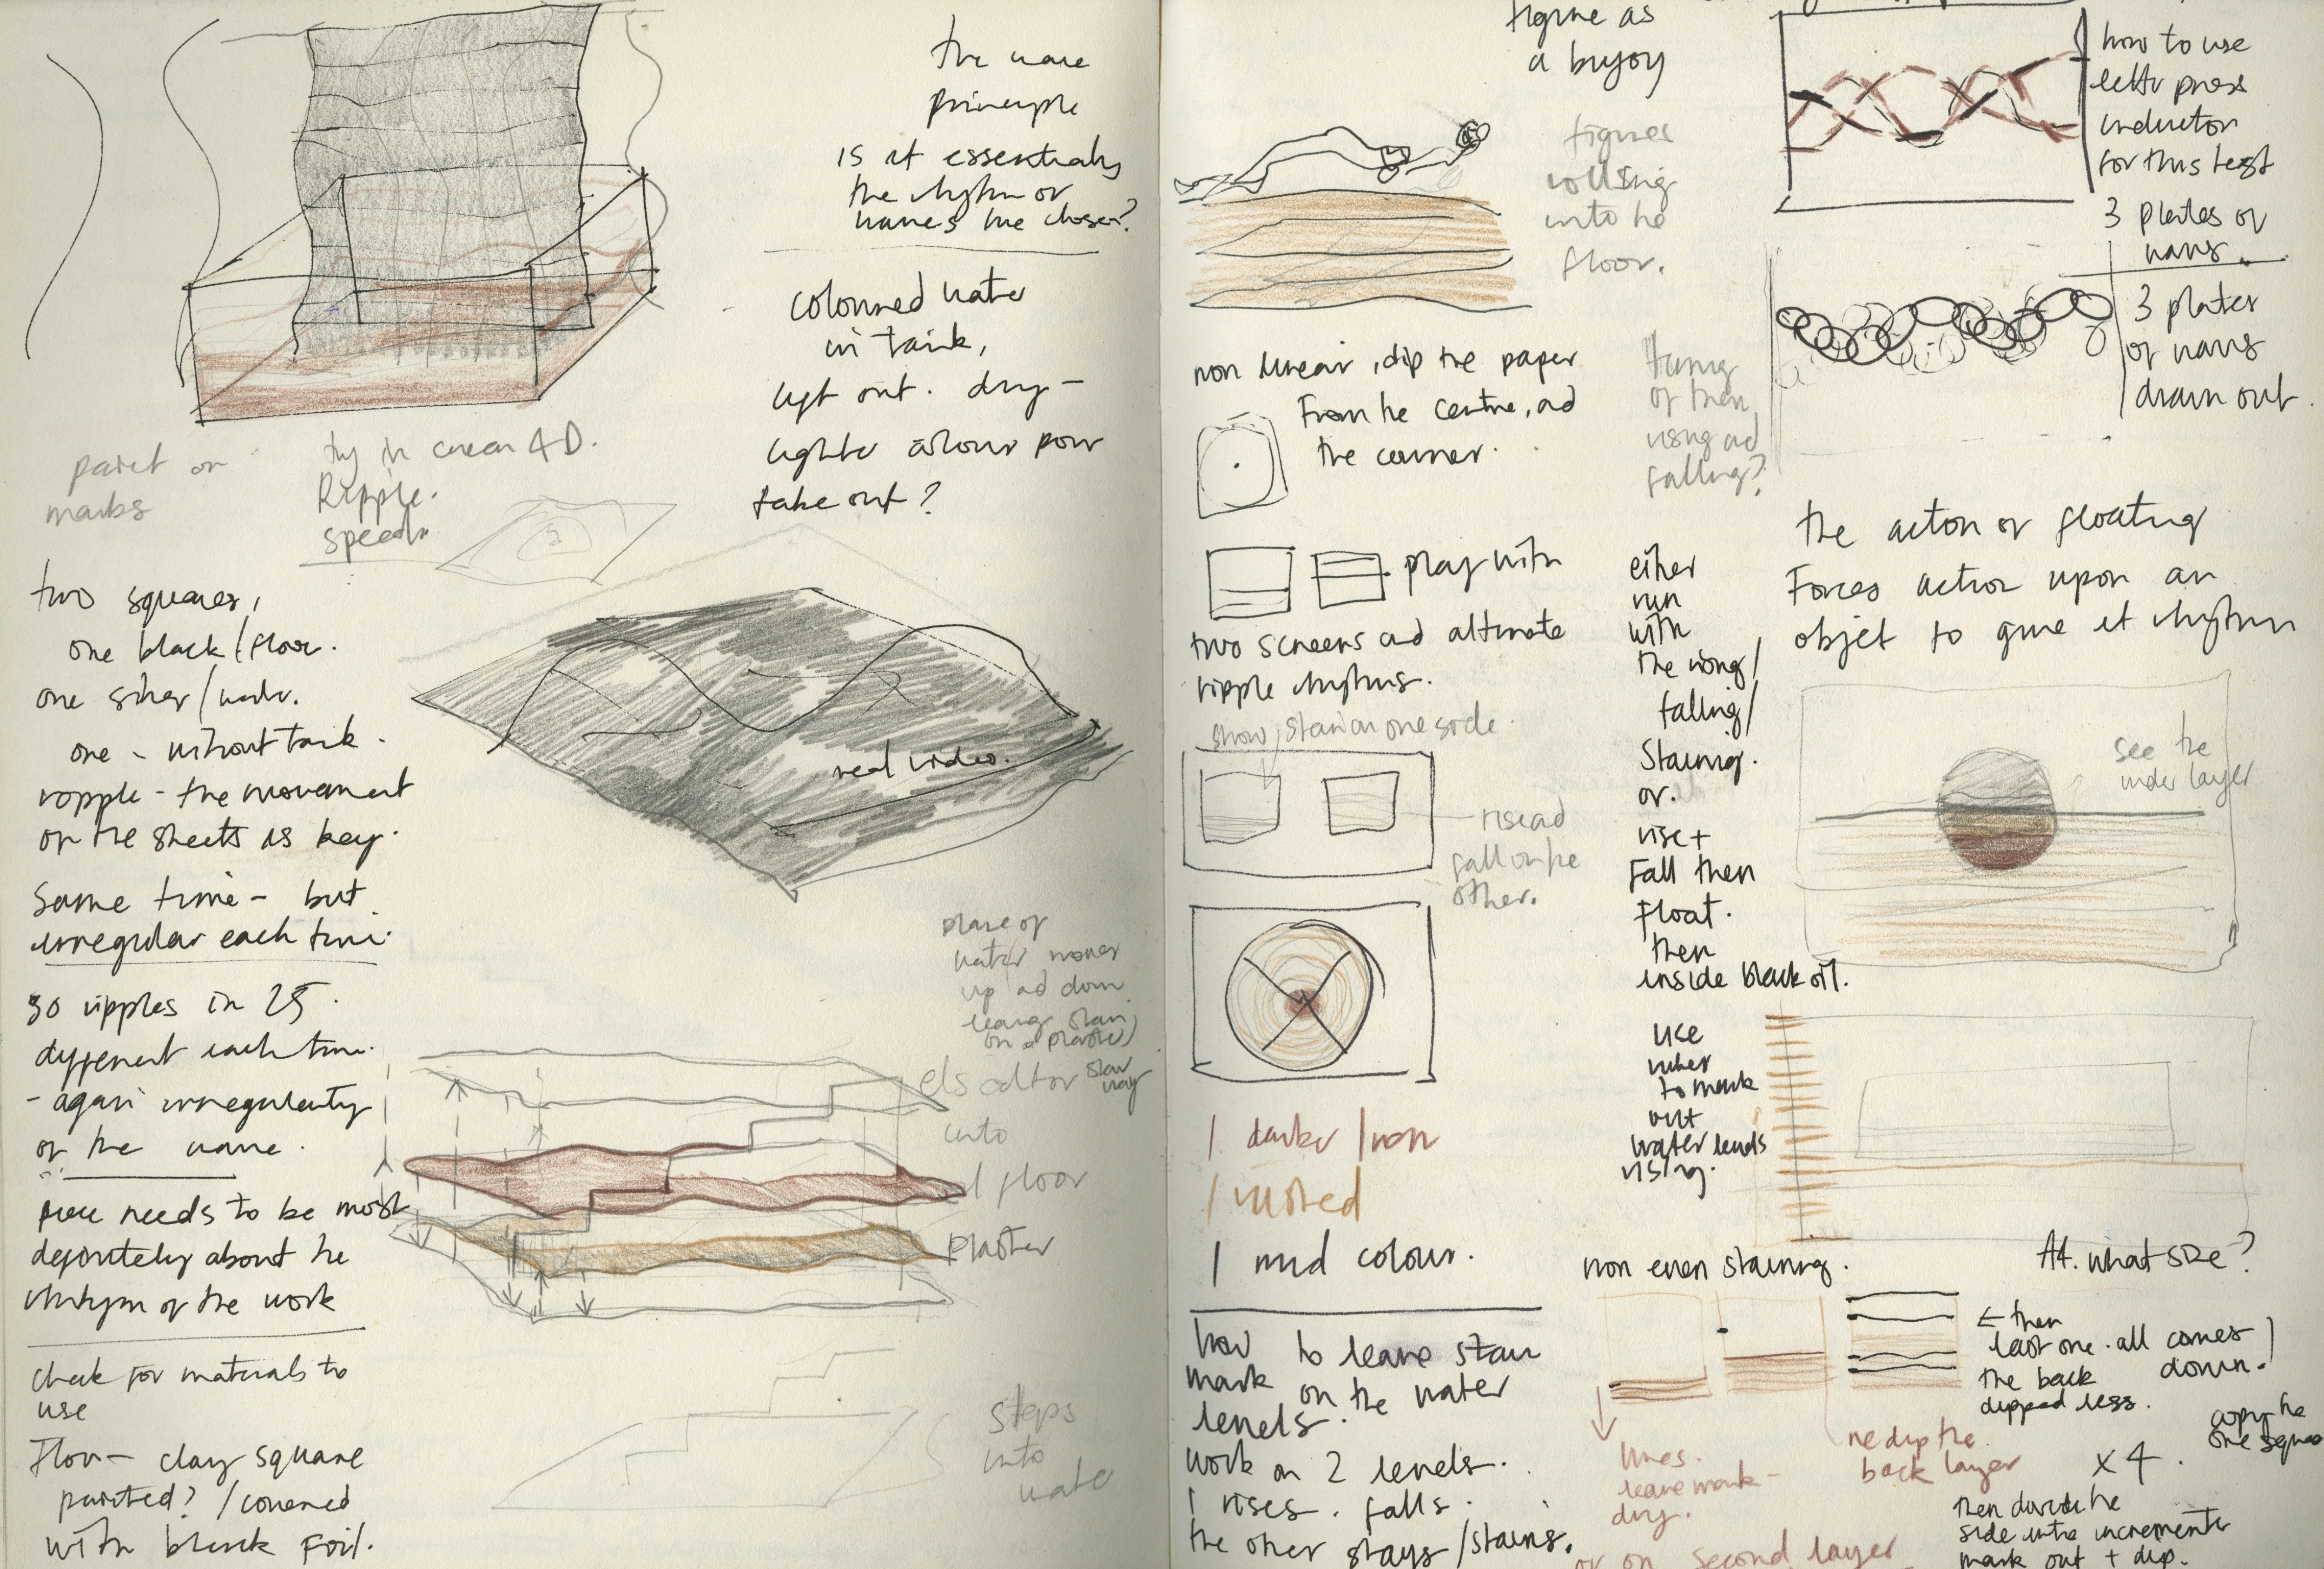 the wave
principle
is it essentially
the rhythm or
waves we chose?
coloured water
in tank,
lift out. dry -
lighter colour pour
take out?
paint or
marks
try in cinema 4D.
Ripple.
speed
two squares,
one black/floor.
one silver/water.
one - without tank.
ripple - the movement
of the sheets is key.
Same time - but
irregular each time.
real video.
30 ripples in 25.
different each time.
- again irregularity
of the wave.
plane of
water moves
up and down
leaving stain
on plaster
stair
way
into
floor
plaster
piece needs to be most
definitely about the
rhythm of the work
check for materials to
use
Floor - clay square
painted? / covered
with black foil.
steps
into
water
figure as
a buoy
figures
rolling
into the
floor.
non linear, dip the paper
from the centre, and
the corner.
timing
of them
rising and
falling?
play with
two screens and alternate
ripple rhythms.
show stain on one side
rise and
fall on the
other.
1 darker / iron
1 rusted
1 mud colour.
how to leave stain
mark on the water
levels.
work on 2 levels.
1 rises. falls.
the other stays/stains.
how to use
letter press
inductor
for this test
3 plates of
waves.
3 plates
of waves
drawn out.
the action of floating
Forces action upon an
object to give it rhythm
either
run
with
the rising/
falling/
Staining.
or.
rise +
Fall then
Float.
then
inside black oil.
see the
under layer
use
ruler
to mark
out
water levels
rising.
non even staining.
A4. what size?
← then
last one. all comes
the back down.
dipped less.
lines.
leave mark -
dry.
or on second layer
re dip the
back layer
x 4.
copy the
one square
then divide the
side into increments
mark out + dip.